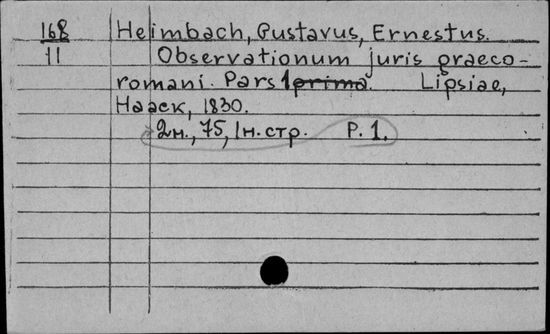 168 Heimbach, Gustavus, Ernestus.
11 Observationum juris graeco-
romani. Pars 1 prima. Lipsiae,
Haack, 1830.
2н., 75, 1н. стр. P. 1.